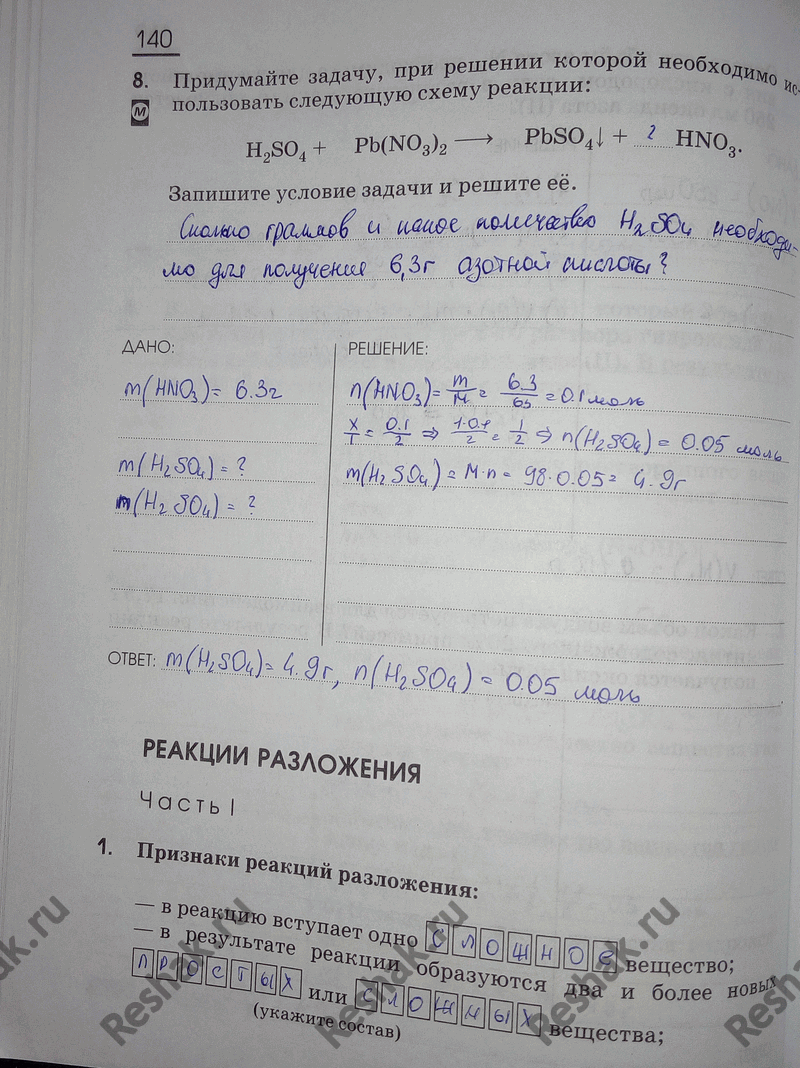 140
8. Придумайте задачу, при решении которой необходимо ис-
пользовать следующую схему реакции:
H₂SO₄ + Pb(NO₃)₂ ⟶ PbSO₄↓ + 2 HNO₃.
Запишите условие задачи и решите её.
Сколько граммов и какое количество H₂SO₄ необходи-
мо для получения 6,3г азотной кислоты?
ДАНО:
m(HNO₃)= 6.3г
m(H₂SO₄)=?
m(H₂SO₄)=?
РЕШЕНИЕ:
n(HNO₃)= m/M = 6.3/63 = 0.1 моль
x/1 = 0.1/2 ⇒ 1·0.1/2 = 1/2 ⇒ n(H₂SO₄)= 0.05 моль
m(H₂SO₄)= M·n= 98·0.05= 4.9г
ОТВЕТ: m(H₂SO₄)= 4.9г, n(H₂SO₄)= 0.05 моль
РЕАКЦИИ РАЗЛОЖЕНИЯ
Часть I
1. Признаки реакций разложения:
— в реакцию вступает одно СЛОЖНОЕ вещество;
— в результате реакции образуются два и более новых
ПРОСТЫХ или СЛОЖНЫХ вещества;
(укажите состав)
Reshak.ru
Reshak.ru
Reshak.ru
Reshak.ru